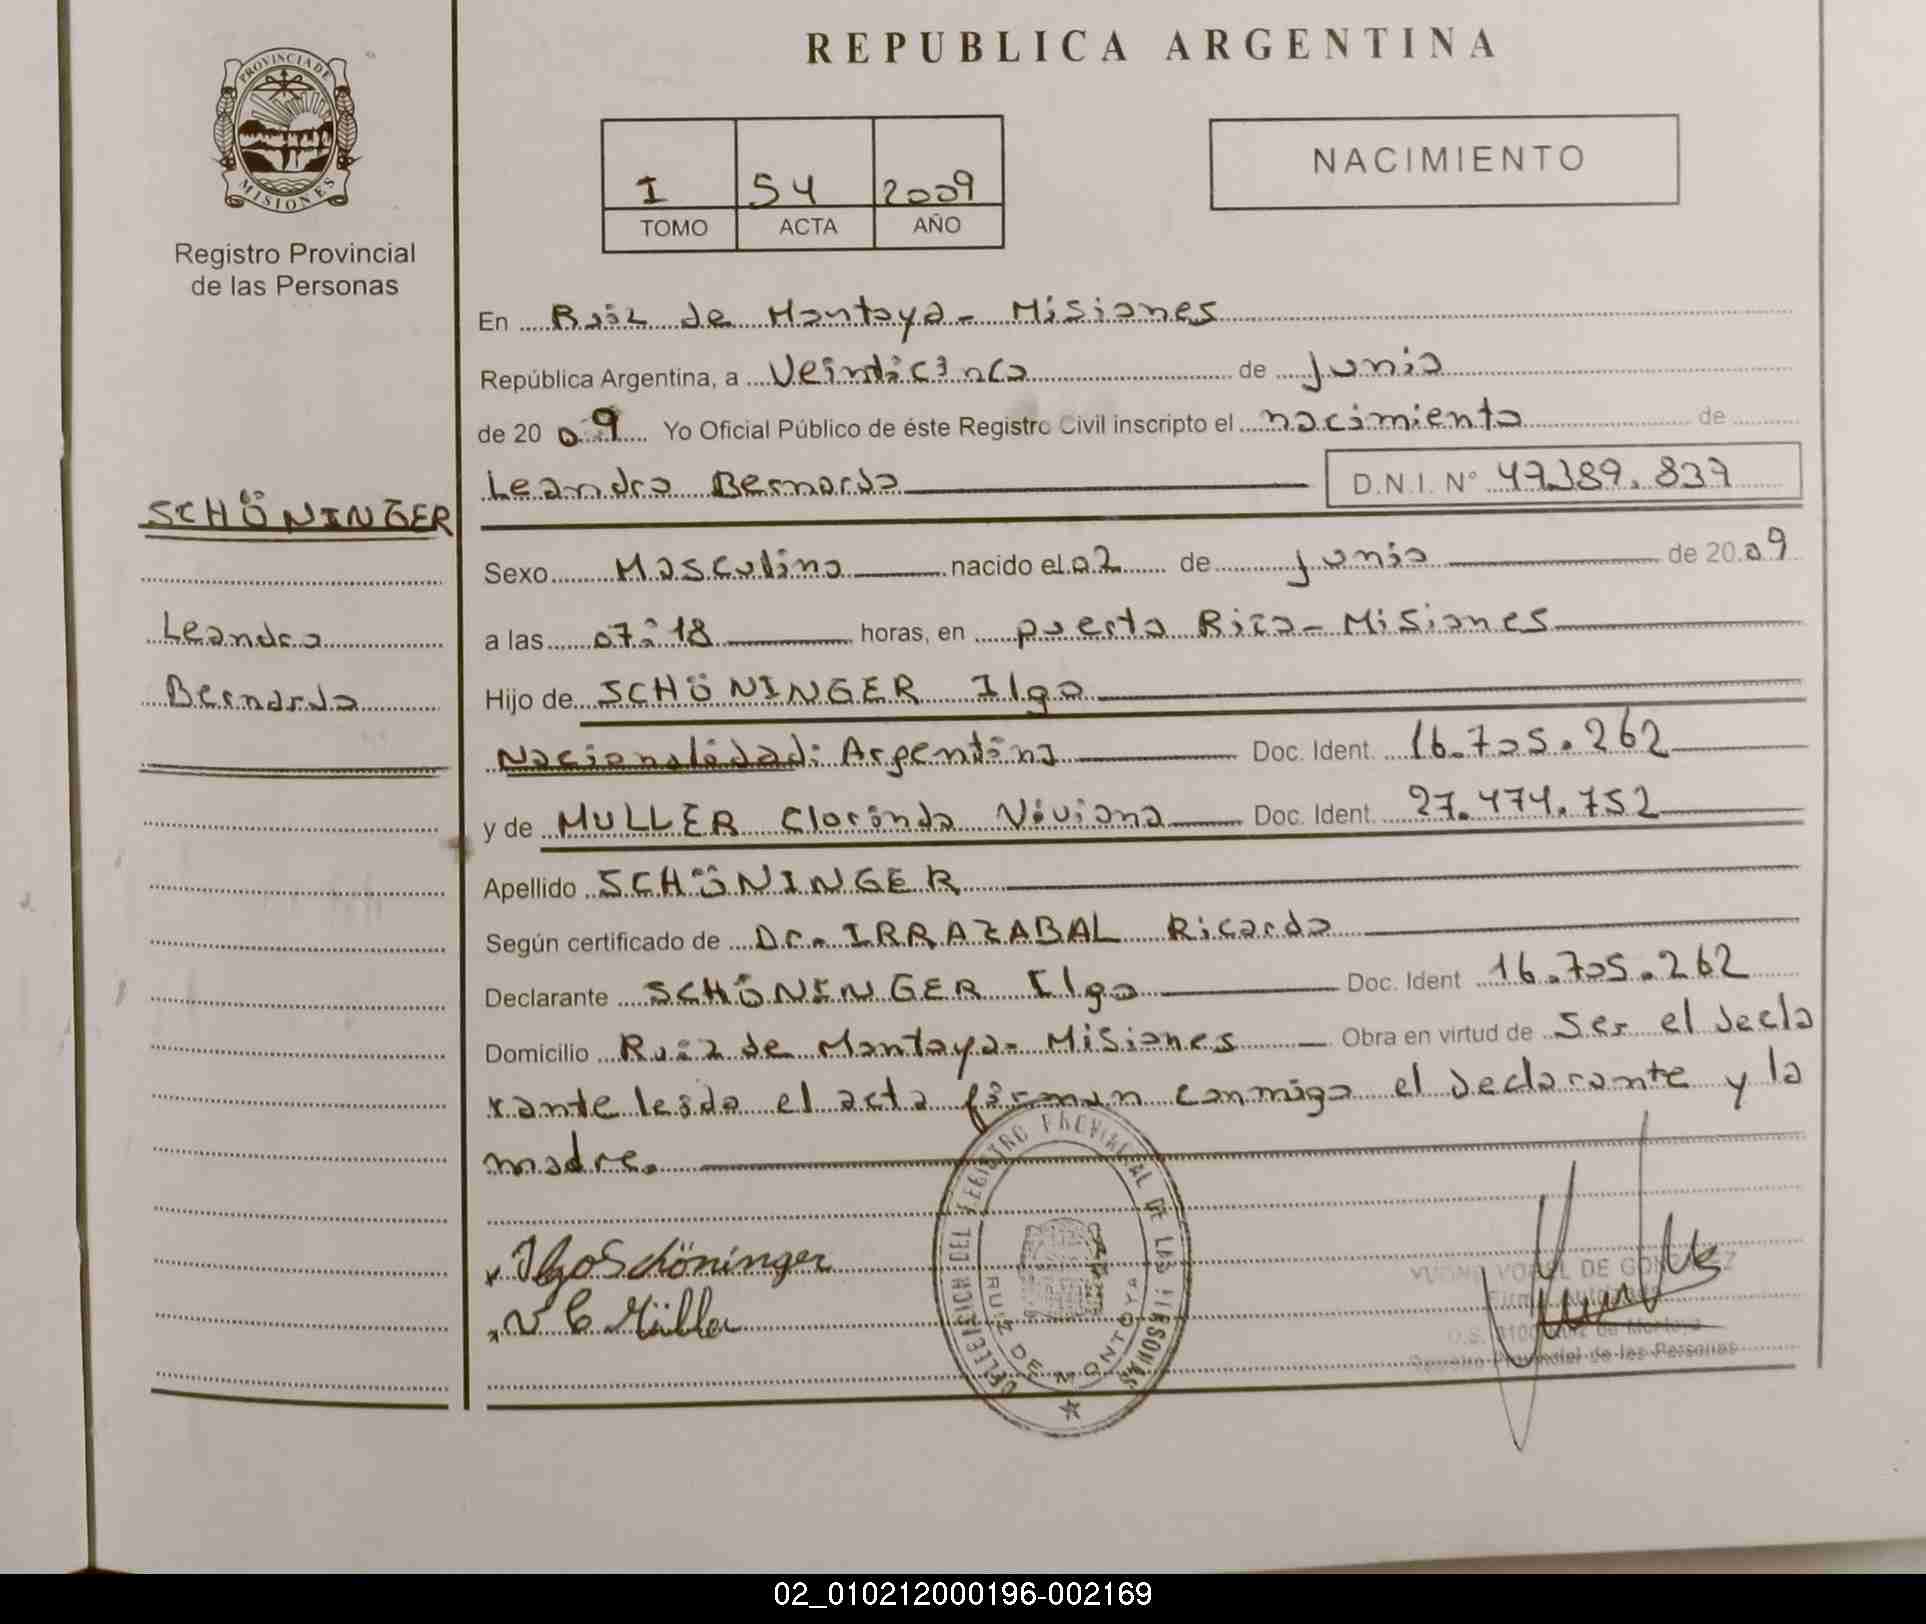 REPUBLICA ARGENTINA
PROVINCIA DE
MISIONES
Registro Provincial
de las Personas
I 54 2009
TOMO ACTA AÑO
NACIMIENTO
En Ruiz de Montoya - Misiones
República Argentina, a Veinticinco de junio
de 2009 Yo Oficial Público de éste Registro Civil inscripto el nacimiento de
Leandro Bernardo D.N.I. Nº 49.389.837
SCHÖNINGER
Leandro
Bernardo
Sexo Masculino nacido el 02 de junio de 2009
a las 07:18 horas, en puerto Rico - Misiones
Hijo de SCHÖNINGER Ilgo
Nacionalidad: Argentina Doc. Ident. 16.705.262
y de MULLER Clorinda Viviana Doc. Ident. 27.474.752
Apellido SCHÖNINGER
Según certificado de Dr. IRRAZABAL Ricardo
Declarante SCHÖNINGER Ilgo Doc. Ident 16.705.262
Domicilio Ruiz de Montoya - Misiones Obra en virtud de ser el decla
rante leida el acta firman conmigo el declarante y la
madre.
Ilgo Schöninger
V C Müller
REGISTRO PROVINCIAL DE LAS PERSONAS
RUIZ DE MONTOYA
Registro Provincial de las Personas
02_010212000196-002169